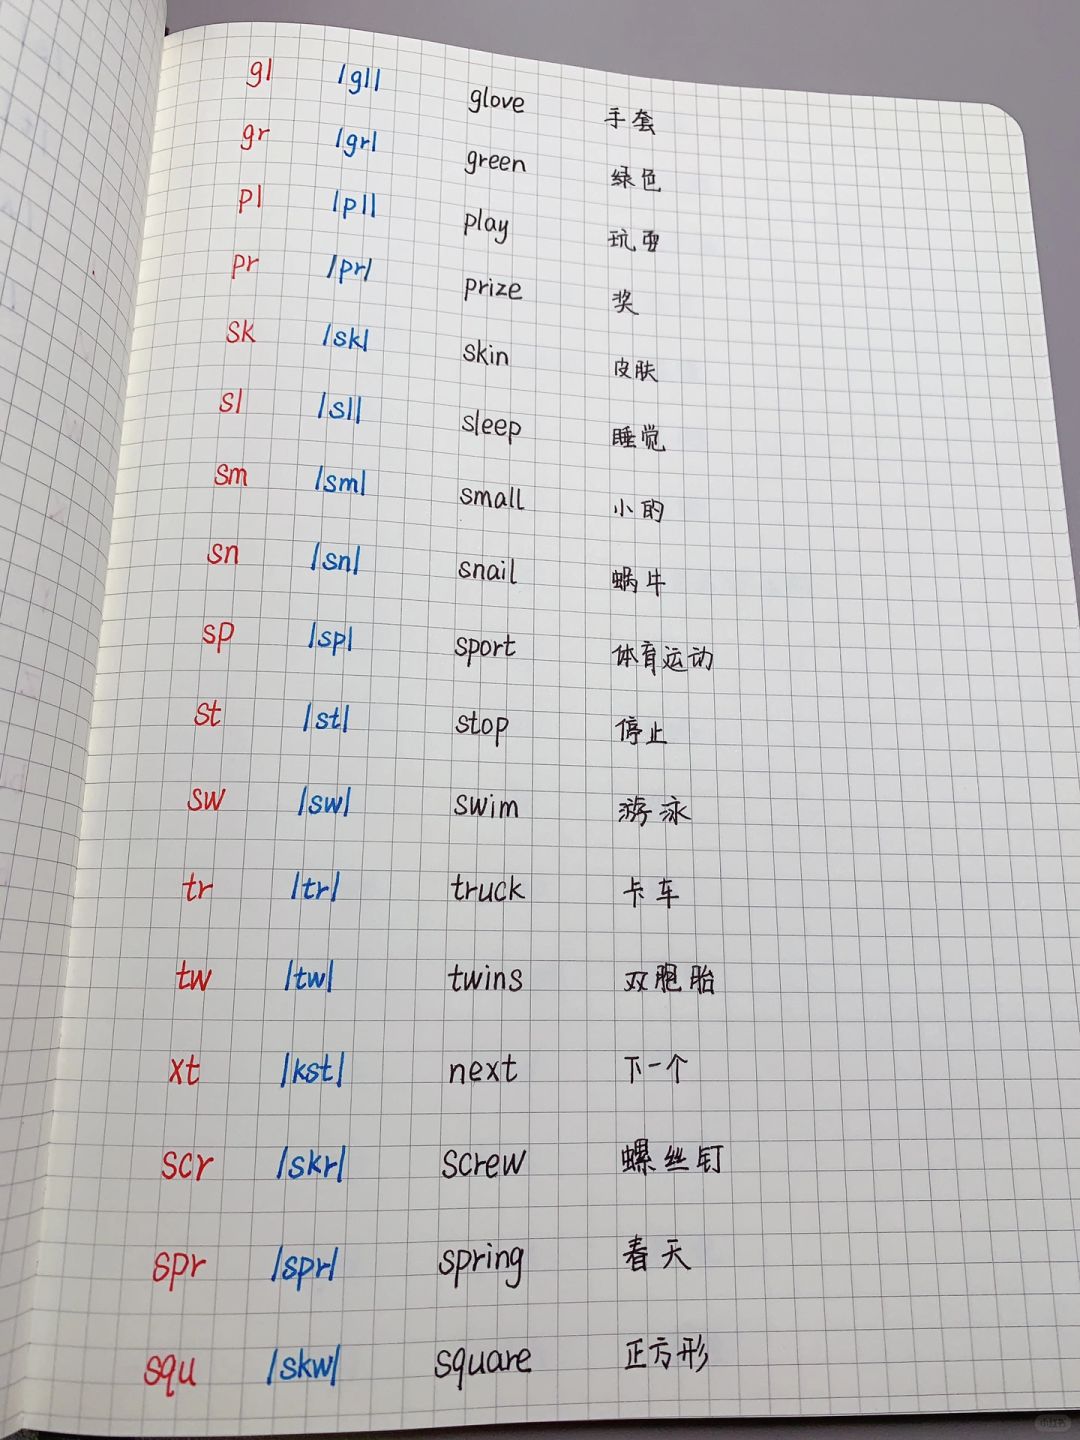 gl /gl/ glove 手套
gr /gr/ green 绿色
pl /pl/ play 玩耍
pr /pr/ prize 奖
sk /sk/ skin 皮肤
sl /sl/ sleep 睡觉
sm /sm/ small 小的
sn /sn/ snail 蜗牛
sp /sp/ sport 体育运动
st /st/ stop 停止
sw /sw/ swim 游泳
tr /tr/ truck 卡车
tw /tw/ twins 双胞胎
xt /kst/ next 下一个
scr /skr/ screw 螺丝钉
spr /spr/ spring 春天
squ /skw/ square 正方形
小红书